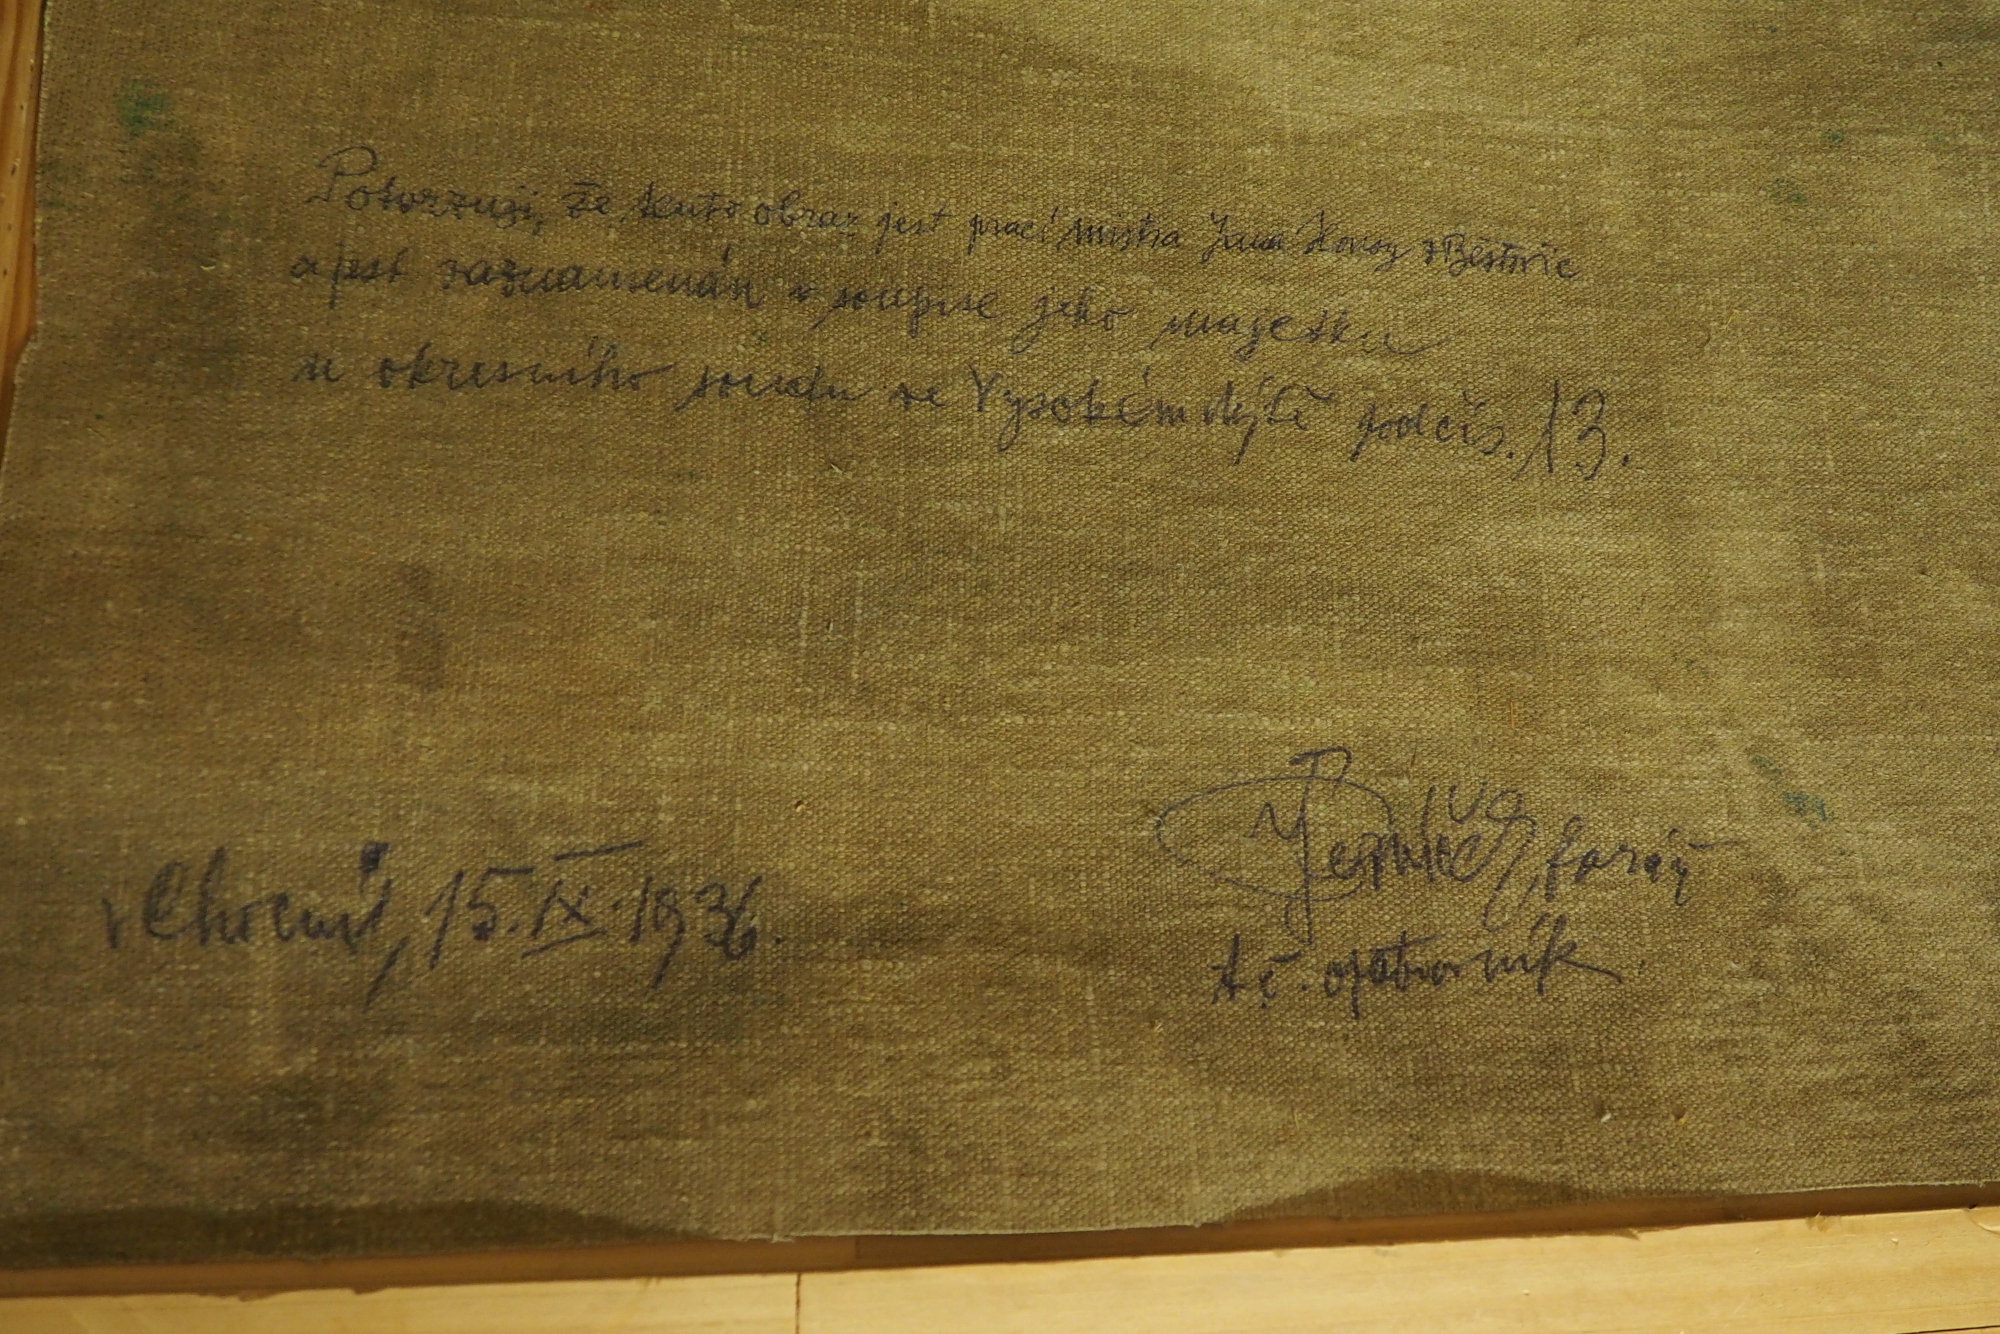 Potvrzuji, že tento obraz jest prací mistra Jana Honsy z Běstvic
a jest zaznamenán v soupise jeho majetku
u okresního soudu ve Vysokém Mýtě pod čís. 13.
v Chocni, 15. IX. 1936.
farář
t. č. opatrovník